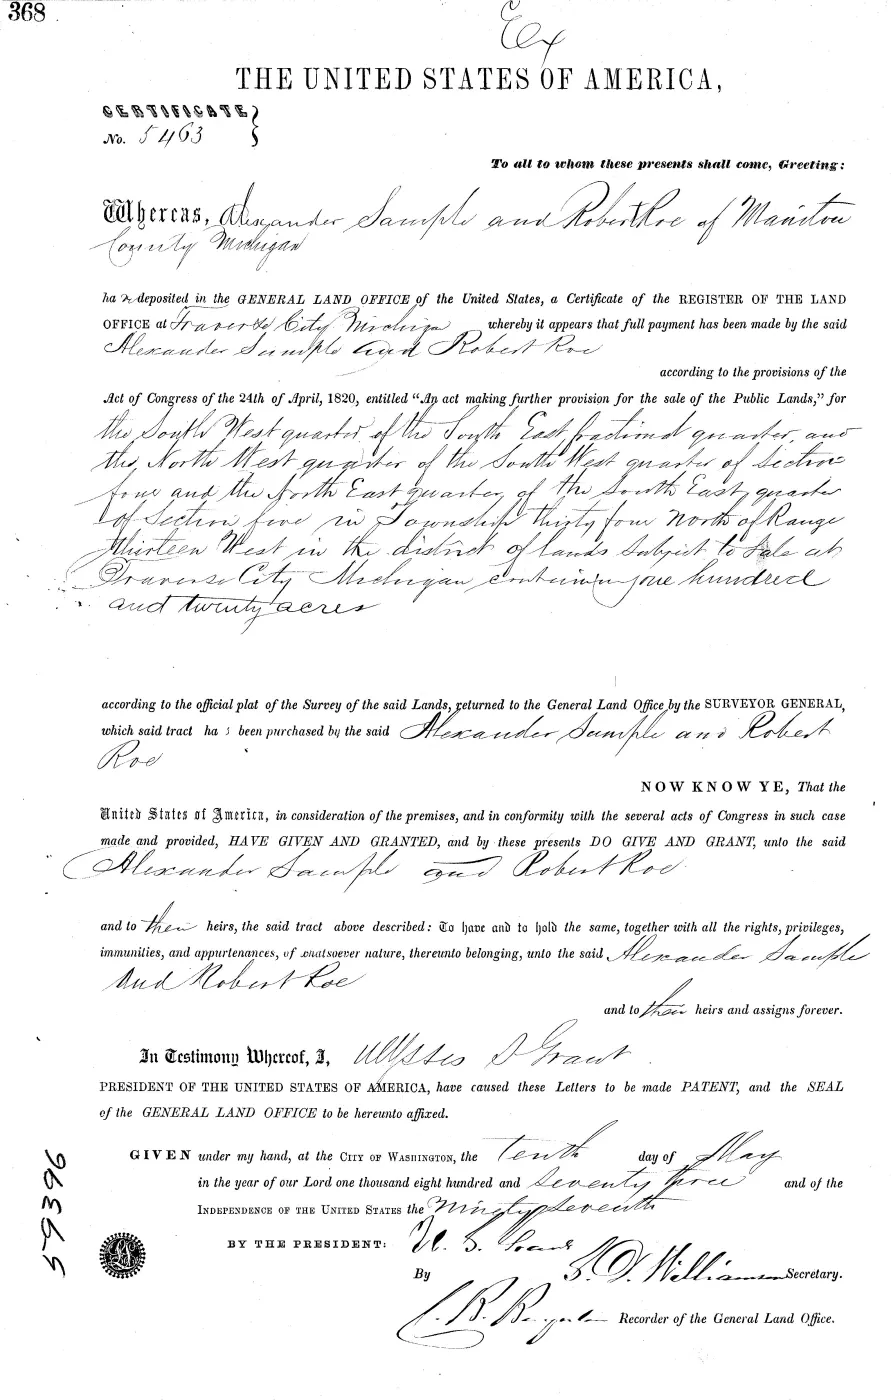 368
Ex
THE UNITED STATES OF AMERICA,
CERTIFICATE
No. 5463
To all to whom these presents shall come, Greeting:
Whereas, Alexander Sample and Robert Roe of Manitou
County Michigan
ha ve deposited in the GENERAL LAND OFFICE of the United States, a Certificate of the REGISTER OF THE LAND
OFFICE at Traverse City Michigan whereby it appears that full payment has been made by the said
Alexander Sample and Robert Roe
according to the provisions of the
Act of Congress of the 24th of April, 1820, entitled “An act making further provision for the sale of the Public Lands,” for
the South West quarter of the South East fractional quarter, and
the North West quarter of the South West quarter of Section
four and the North East quarter of the South East quarter
of Section five in Township thirty four North of Range
thirteen West in the district of lands subject to sale at
Traverse City Michigan containing one hundred
and twenty acres
according to the official plat of the Survey of the said Lands, returned to the General Land Office by the SURVEYOR GENERAL,
which said tract ha s been purchased by the said Alexander Sample and Robert
Roe
NOW KNOW YE, That the
United States of America, in consideration of the premises, and in conformity with the several acts of Congress in such case
made and provided, HAVE GIVEN AND GRANTED, and by these presents DO GIVE AND GRANT, unto the said
Alexander Sample and Robert Roe
and to their heirs, the said tract above described: To have and to hold the same, together with all the rights, privileges,
immunities, and appurtenances, of whatsoever nature, thereunto belonging, unto the said Alexander Sample
and Robert Roe
and to their heirs and assigns forever.
In Testimony Whereof, I, Ulysses S Grant
PRESIDENT OF THE UNITED STATES OF AMERICA, have caused these Letters to be made PATENT, and the SEAL
of the GENERAL LAND OFFICE to be hereunto affixed.
GIVEN under my hand, at the CITY OF WASHINGTON, the tenth day of May
in the year of our Lord one thousand eight hundred and seventy three and of the
INDEPENDENCE OF THE UNITED STATES the ninety seventh
BY THE PRESIDENT: U. S. Grant
By S. D. Williamson Secretary.
Recorder of the General Land Office.
59396